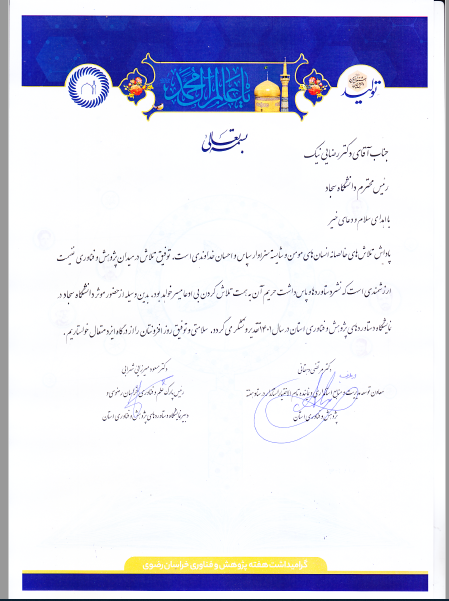 تولید
یا عالم آل محمد
بسمه تعالی
جناب آقای دکتر رضایی نیک
رئیس محترم دانشگاه سجاد
با اهدای سلام و دعای خیر
پاداش تلاش های خالصانه انسان های مومن و شایسته سزاوار سپاس و احسان خداوندی است. توفیق تلاش در میدان پژوهش و فناوری غنیمت
ارزشمندی است که نشر دستاوردها و پاس داشت حریم آن به همت تلاش کردن بی ادعا میسر خواهد بود. بدین وسیله از حضور موثر دانشگاه سجاد در
نمایشگاه دستاوردهای پژوهش و فناوری استان در سال ۱۴۰۱ تقدیر و تشکر می گردد. سلامتی و توفیق روز افزونتان را از درگاه ایزد متعال خواستاریم.
دکتر مرتضی دهقانی
معاون توسعه مدیریت و منابع استانداری و نماینده تام الاختیار استاندار در ستاد هفته
پژوهش و فناوری استان
دکتر مسعود میرزایی شهرابی
رئیس پارک علم و فناوری خراسان رضوی و
دبیر نمایشگاه دستاوردهای پژوهش و فناوری استان
گرامیداشت هفته پژوهش و فناوری خراسان رضوی